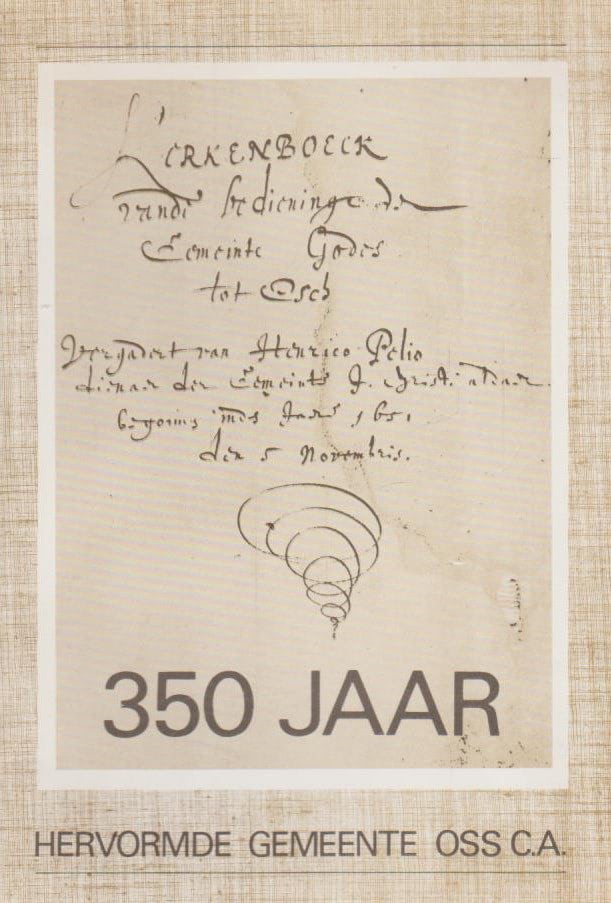 KERKENBOECK
vande bedieninge der
Gemeinte Godes
tot Osch
Vergadert van Henrico Pelio
dienaer der Gemeinte J. Christi aldaer.
begonnen Jaer 1651
den 5 Novembris.
350 JAAR
HERVORMDE GEMEENTE OSS C.A.